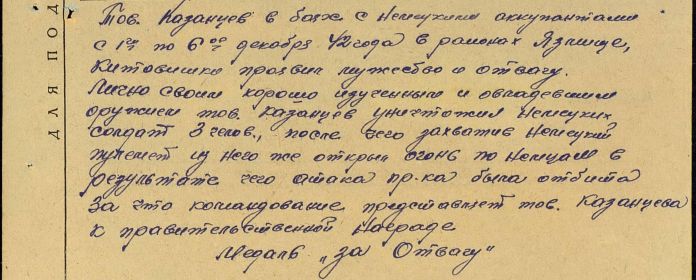 ДЛЯ ПОД
Тов. Казанцев в боях с Немецкими аккупантами
с 1го по 6ое декабря 42 года в районах
проявил мужество и отвагу.
Лично своим хорошо изученным и овладевшим
оружием тов. Казанцев уничтожил Немецких
солдат 3 челов., после чего захватив Немецкий
пулемет из него же открыл огонь по Немцам в
результате чего атака пр-ка была отбита
За что командование представляет тов. Казанцева
к правительственной Награде
Медаль "За Отвагу"